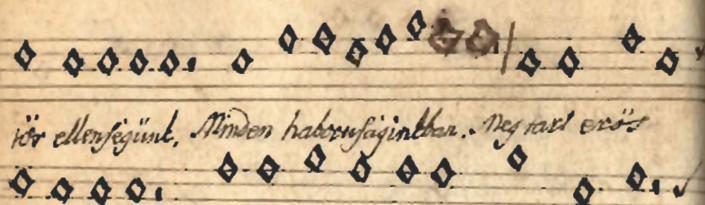 tör ellenſégünk, Minden haboruſáginkban. Meg tart erös